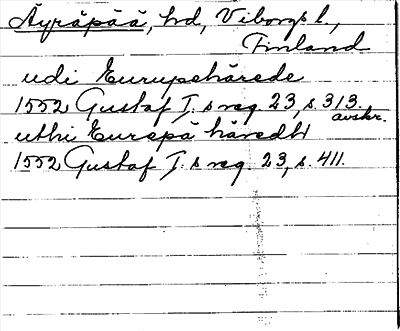 Äyräpää, hd, Viborgs l.,
Finland
udi Eurupehärede
1552 Gustaf I. s reg. 23, s. 313.
avskr.
uthi Eurepä häredht
1552 Gustaf I. s reg. 23, s. 411.